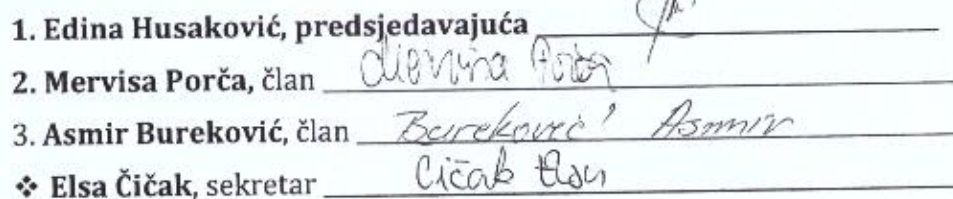 1. Edina Husaković, predsjedavajuća
2. Mervisa Porča, član
3. Asmir Bureković, član Bureković Asmir
❖ Elsa Čičak, sekretar Čičak Elsa